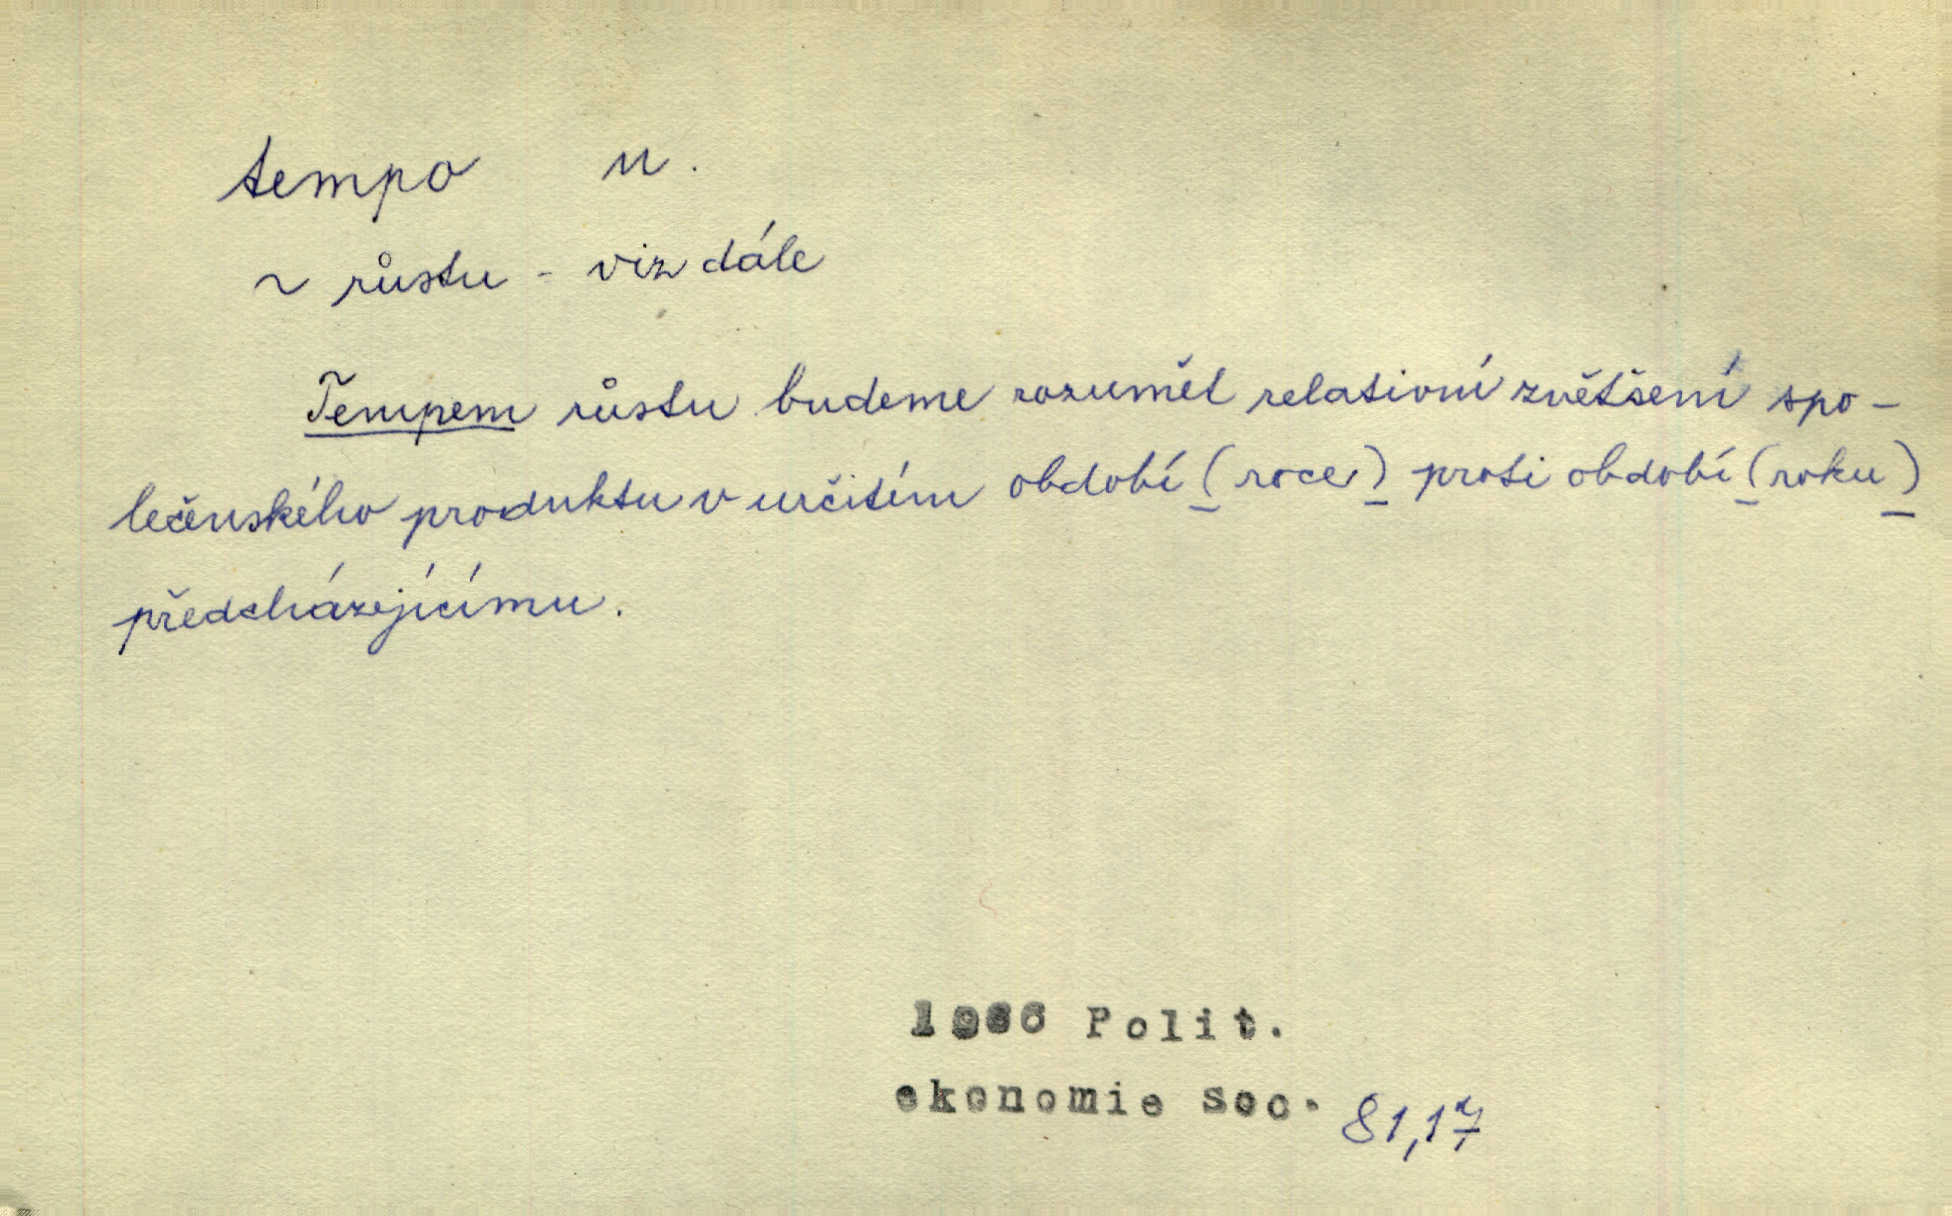 tempo n.
~ růstu - viz dále
Tempem růstu budeme rozumět relativní zvětšení spo-
lečenského produktu v určitém období (roce) proti období (roku)
předcházejícímu.
1966 Polit.
ekonomie soc. 81,17